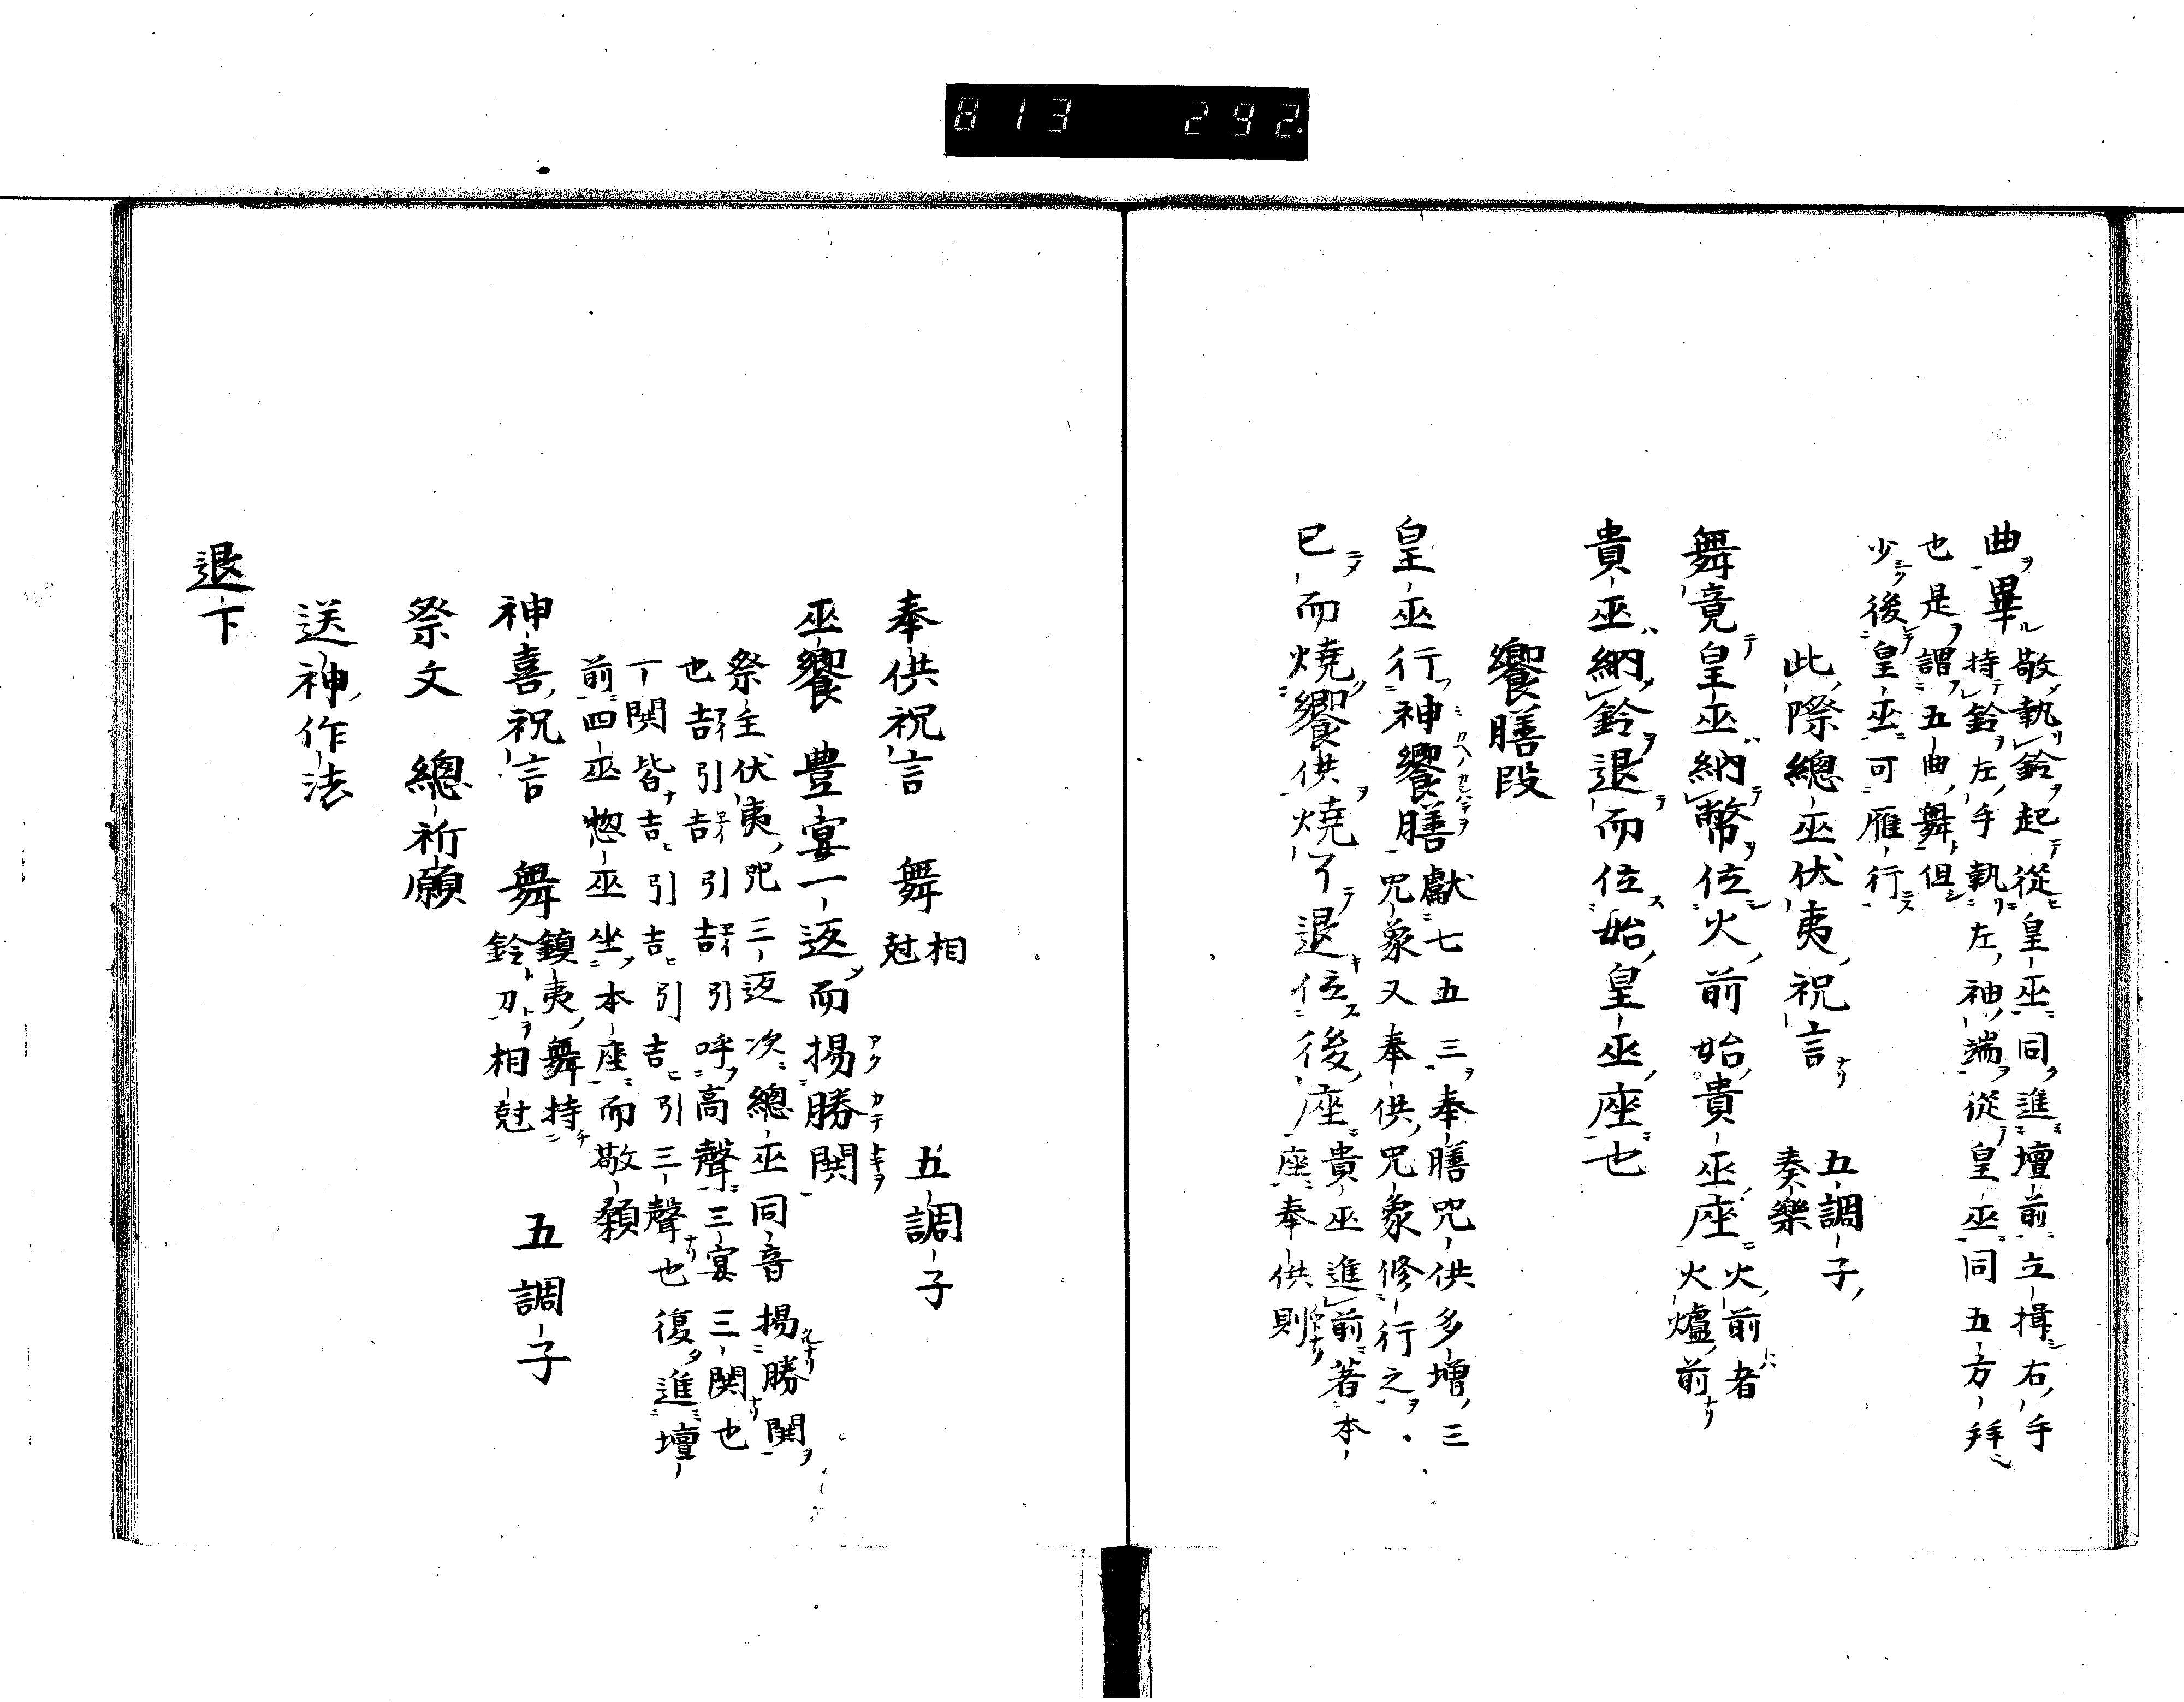 813 292.
曲畢
敬執鈴起從皇巫同進壇前立揖右手
持鈴左手執左袖端從皇巫同五方拜
也是謂五曲舞但
少後皇巫可雁行
此際總巫伏夷祝言
五調子
奏樂
舞竟皇巫納幣位火前始貴巫座
火前者
火爐前
貴巫納鈴退而位始皇巫座也
饗膳段
皇巫行神饗膳
獻七五三奉膳咒供多增三
咒象又奉供咒象修行之
已而燒饗供燒了退位後座
貴巫進前著本
座奉供則
奉供祝言 舞 相尅 五調子
巫饗 豊宴一返而揚勝閧
祭主伏夷咒三返次總巫同音揚勝閧
也吉引吉引吉引呼高聲三宴三閧也
丁閧皆吉引吉引吉引三聲也復進壇
前四巫惣巫坐本座而敬顙
神喜祝言 舞
鎮夷舞持
鈴刀相尅
五調子
祭文 總祈願
送神作法
退下